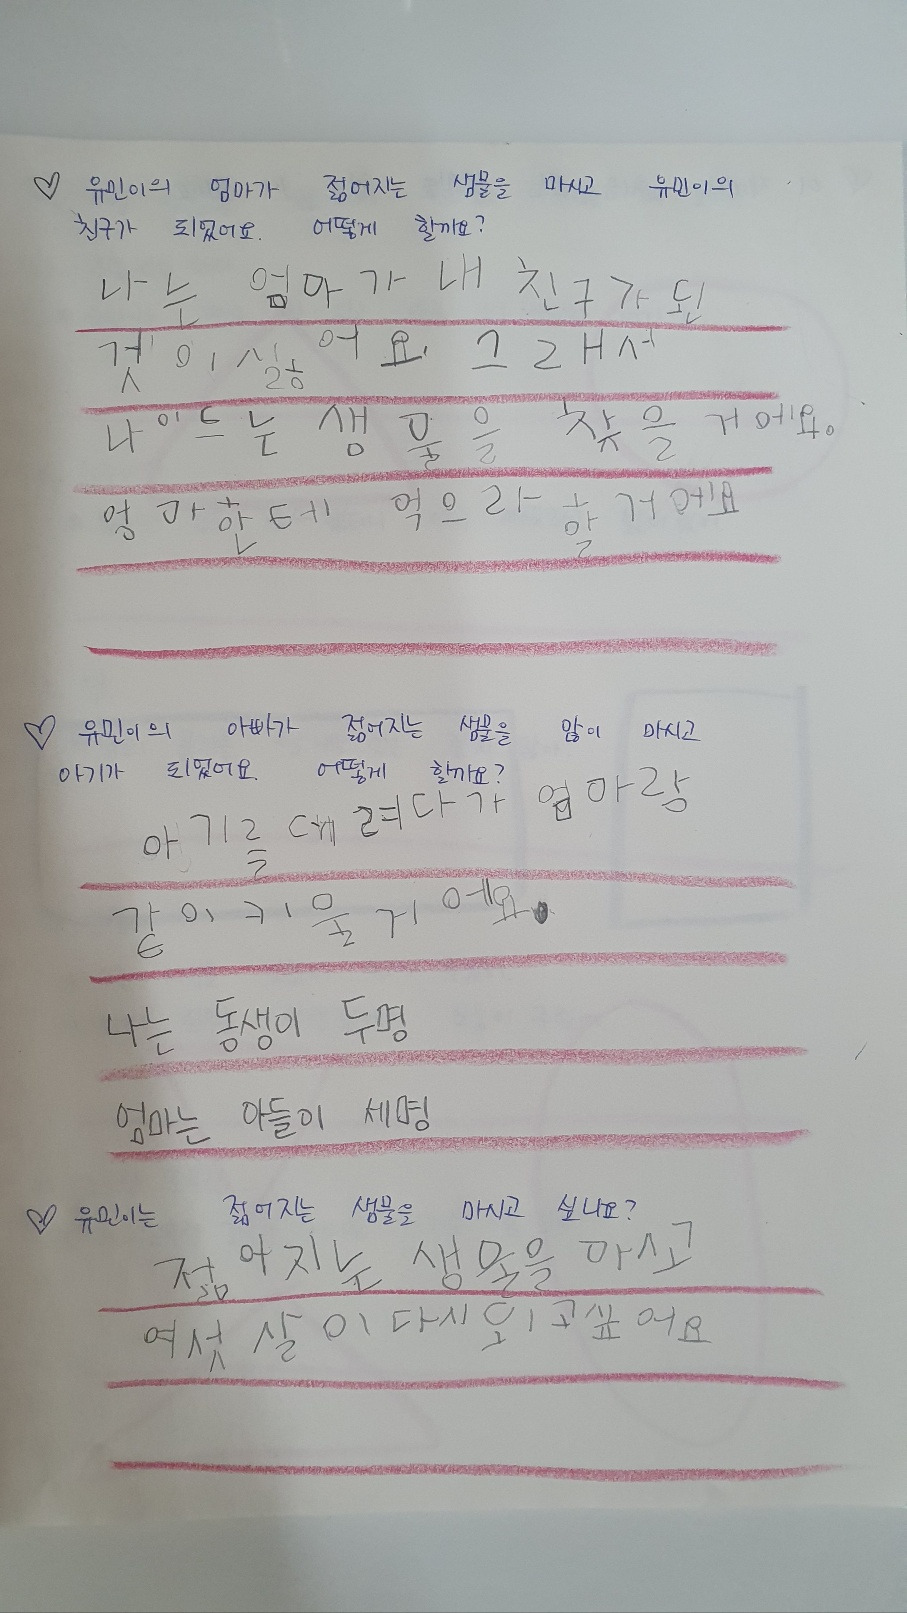 ♡ 유민이의 엄마가 젊어지는 샘물을 마시고 유민이의
친구가 되었어요. 어떻게 할까요?
나는 엄마가 내 친구가 된
것이싫어요. 그래서
나이드는 생물을 찾을거에요.
엄마한테 먹으라 할거에요
♡ 유민이의 아빠가 젊어지는 샘물을 많이 마시고
아기가 되었어요. 어떻게 할까요?
아기를데려다가 엄마랑
같이키울거에요.
나는 동생이 두명
엄마는 아들이 세명
♡ 유민이는 젊어지는 샘물을 마시고 싶나요?
젊아지는 생물을 마시고
여섯살이다시 고싶어요